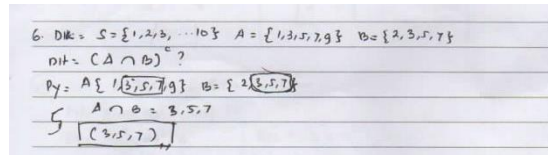 6. Dik = S = {1,2,3, ...10} A = {1,3,5,7,9} B = {2,3,5,7}
Dit = (A ∩ B)ᶜ ?
Py = A{ 1,3,5,7,9} B = { 2,3,5,7}
A ∩ B = 3,5,7
(3,5,7)